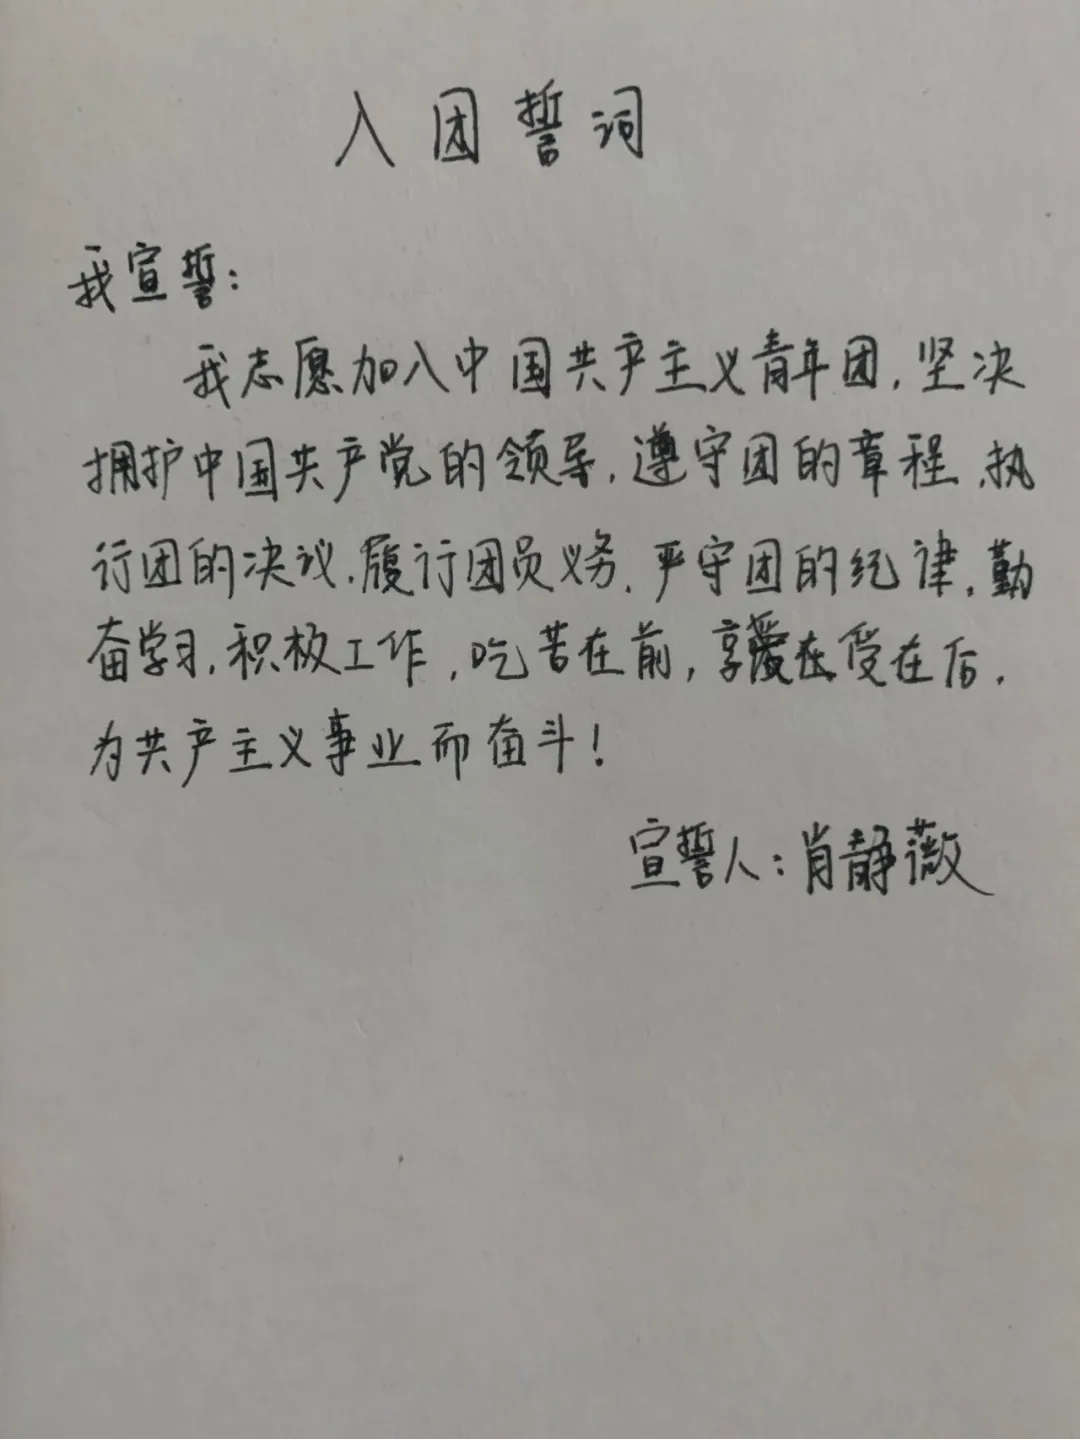 入团誓词
我宣誓:
我志愿加入中国共产主义青年团,坚决
拥护中国共产党的领导,遵守团的章程,执
行团的决议,履行团员义务,严守团的纪律,勤
奋学习,积极工作,吃苦在前,享受在后,
为共产主义事业而奋斗!
宣誓人:肖静薇